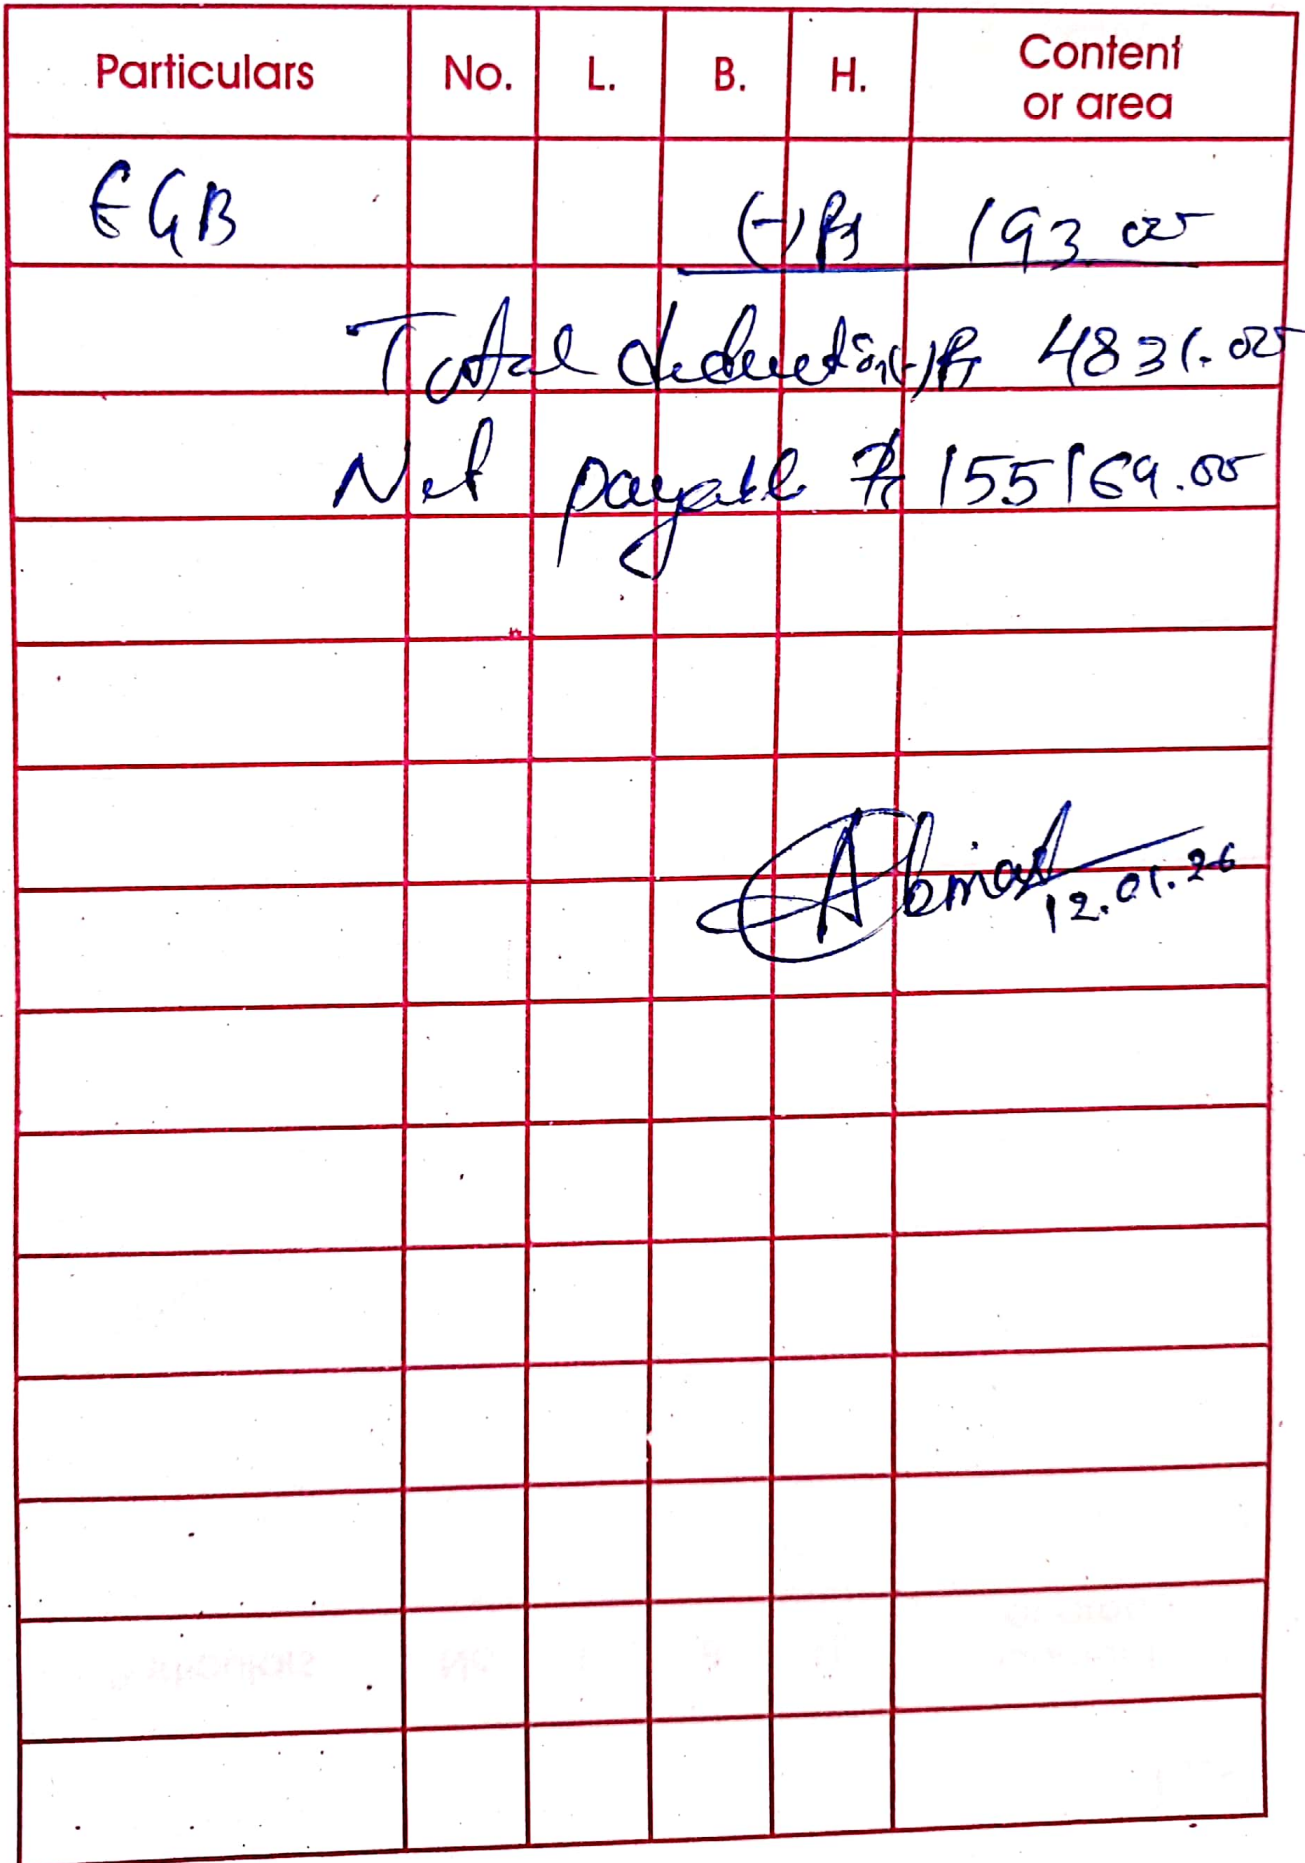 Particulars No. L. B. H. Content or area
EGB (-) Rs 193.00
Total deduction (-) Rs 4831.00
Net payable Rs 155169.00
12.01.26